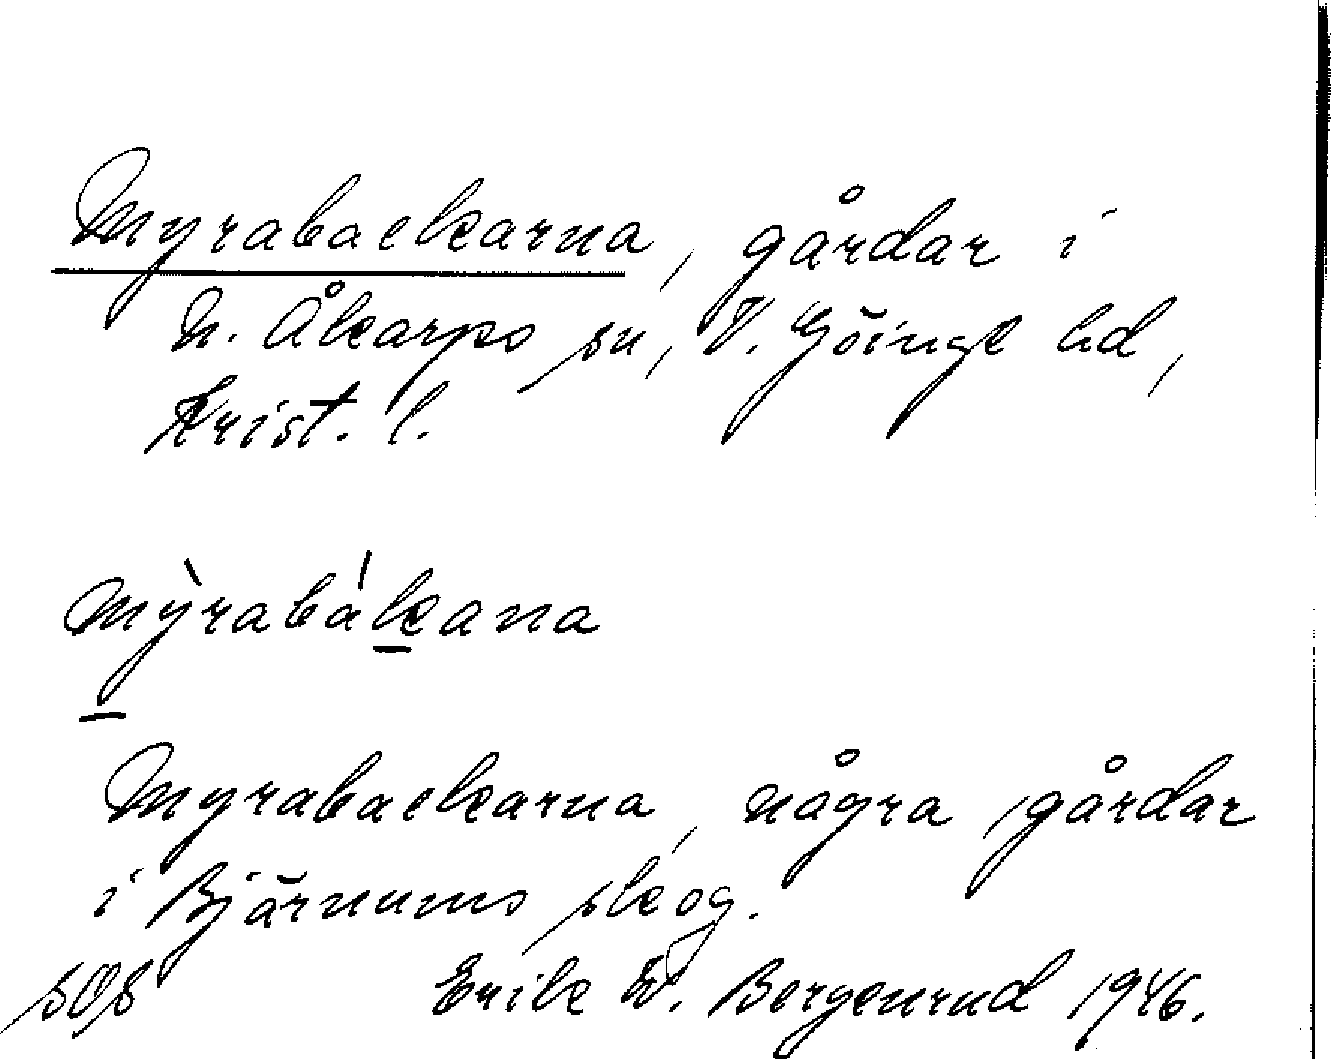 Myrabackarna, gårdar i
N. Åkarps sn, V. Göinge hd,
Krist. l.
mỳrabákana
Myrabackarna, några gårdar
i Bjärnums skog.
sos Erik W. Bergenrud 1946.